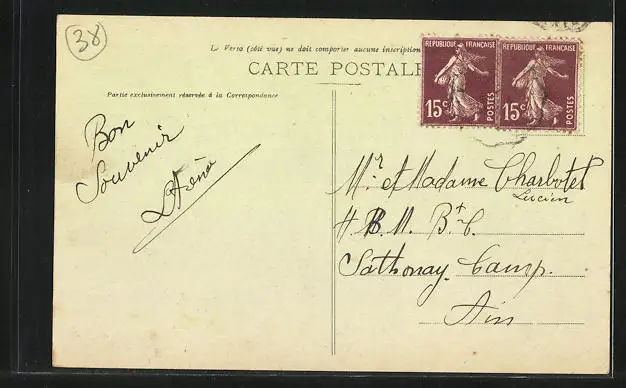 38
Le Verso (côté vue) ne doit comporter aucune inscription
CARTE POSTALE
Partie exclusivement réservée à la Correspondance
REPUBLIQUE FRANÇAISE
15c POSTES
REPUBLIQUE FRANÇAISE
15c POSTES
Bon
Souvenir
Mr et Madame Charbotet
Lucien
H.B.M. Bt C.
Sathonay Camp.
Ain